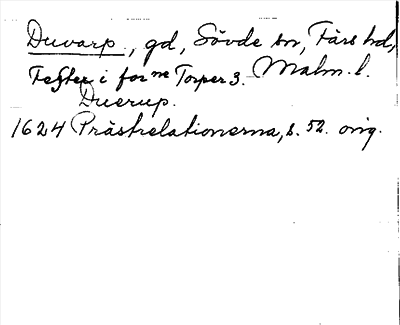 Duvarp, gd, Sövde sn, Färs hd,
Fester i for ne Torper 3. Malm. l.
Duerup.
1624 Prästrelationerna, s. 52. orig.